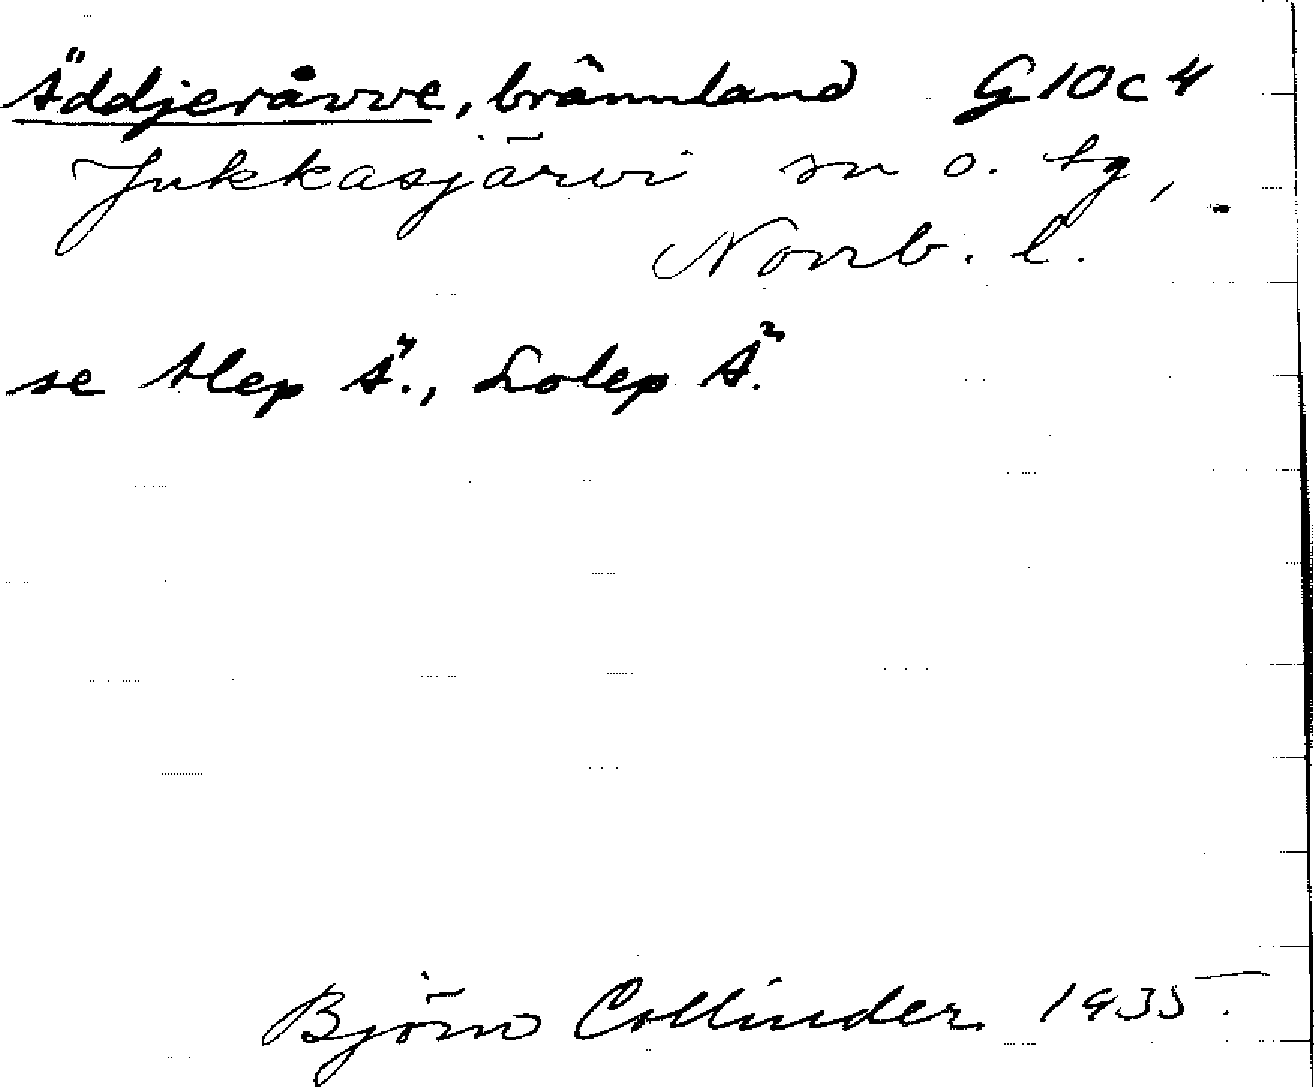 Äddjeråvve, brännland G10c4
Jukkasjärvi sn o. tg,
Norrb. l.
se Alep Ä., Lolep Ä.
Björn Collinder 1935.